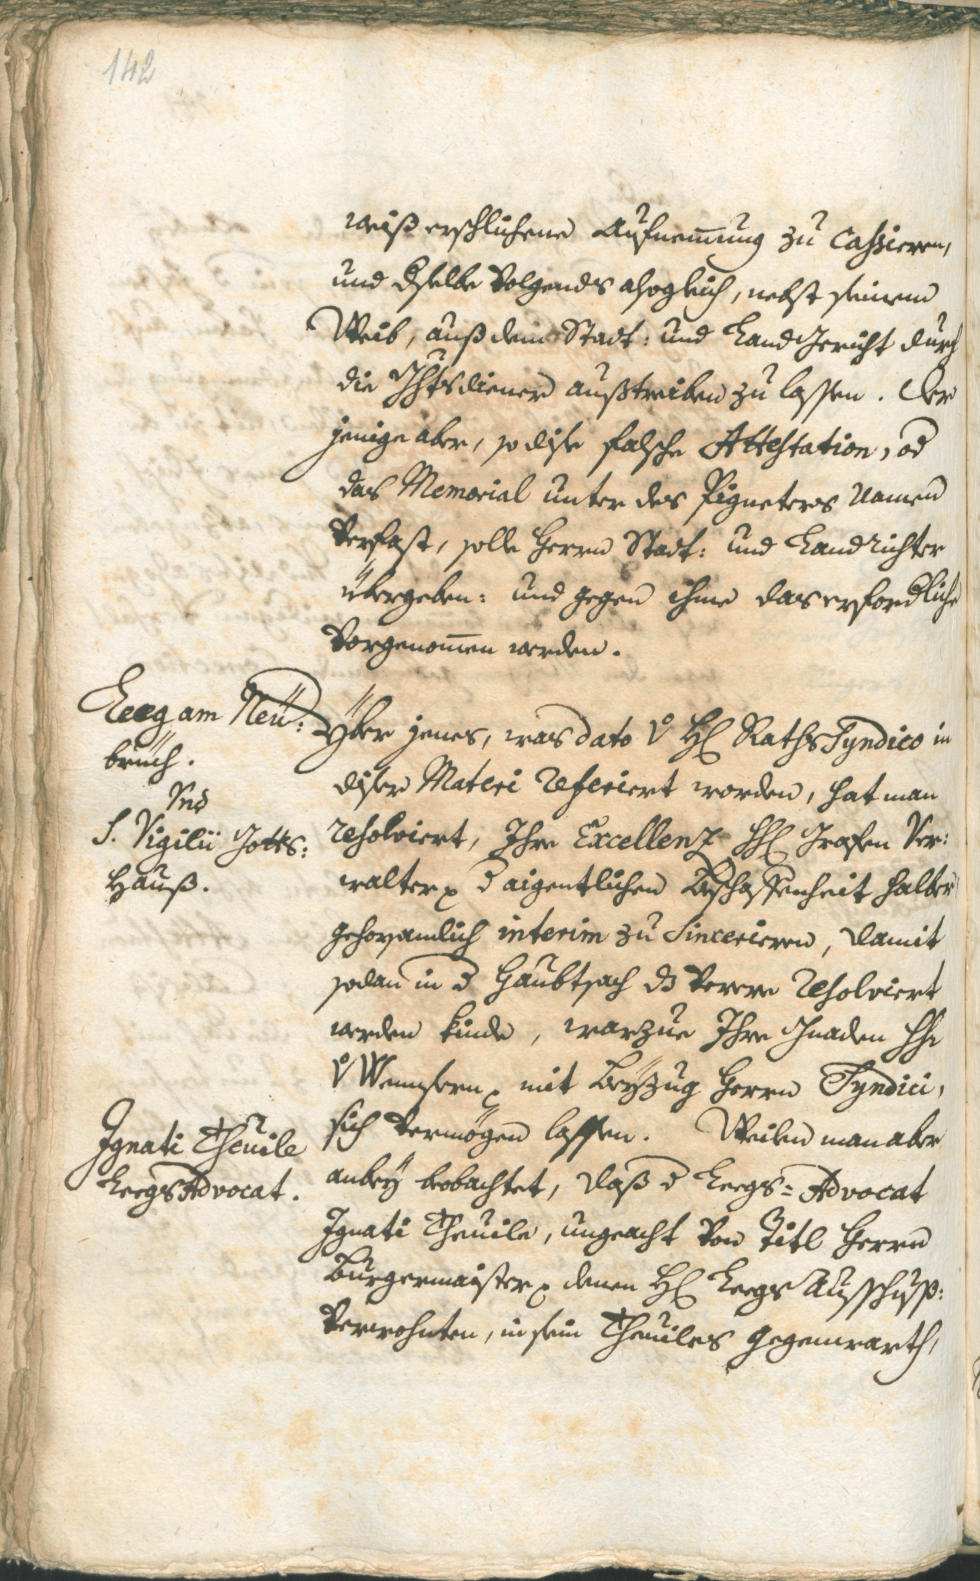 142
weiß erschlichene Aufnemmung zu Cassieren,
und dselbe volgends alsogleich, nebst seinem
Weib, auß dem Stadt: und Landgericht durch
die Ghtsdiener außtreiben zu lassen. Der
jenige aber, so dise falsche Attestation, od
das Memorial unter des Pigneters Namen
verfast, solle Herrn Stadt: und Landrichter
übergeben: und gegen ihme das erfordliche
vorgenommen werden.
Leeg am Neü:
bruch.
Und
S. Vigilii Gotts:
Hauß.
Yber jenes, was dato v H: Raths Syndico in
diser Materi referiert worden, hat man
resolviert, Ihre Excellenz HH: Grafen Ver:
walter d aigentlichen Beschaffenheit halber
gehorsamlich interim zu sincerieren, damit
sodan in d Haubtsach ds verere resolviert
werden kinde, warzue Ihre Gnaden HH:
v Wenser mit Beyzug Herrn Syndici,
sich vermögen lassen. Weilen man aber
Ignati Theuile
Leegs Advocat.
anbey beobachtet, daß d Leegs-Advocat
Ignati Theuile, ungeacht von Titl Herrn
Burgermaister denen H: Leegs Ausschuß:
verwohnten, in sein Theuiles gegenwarth,